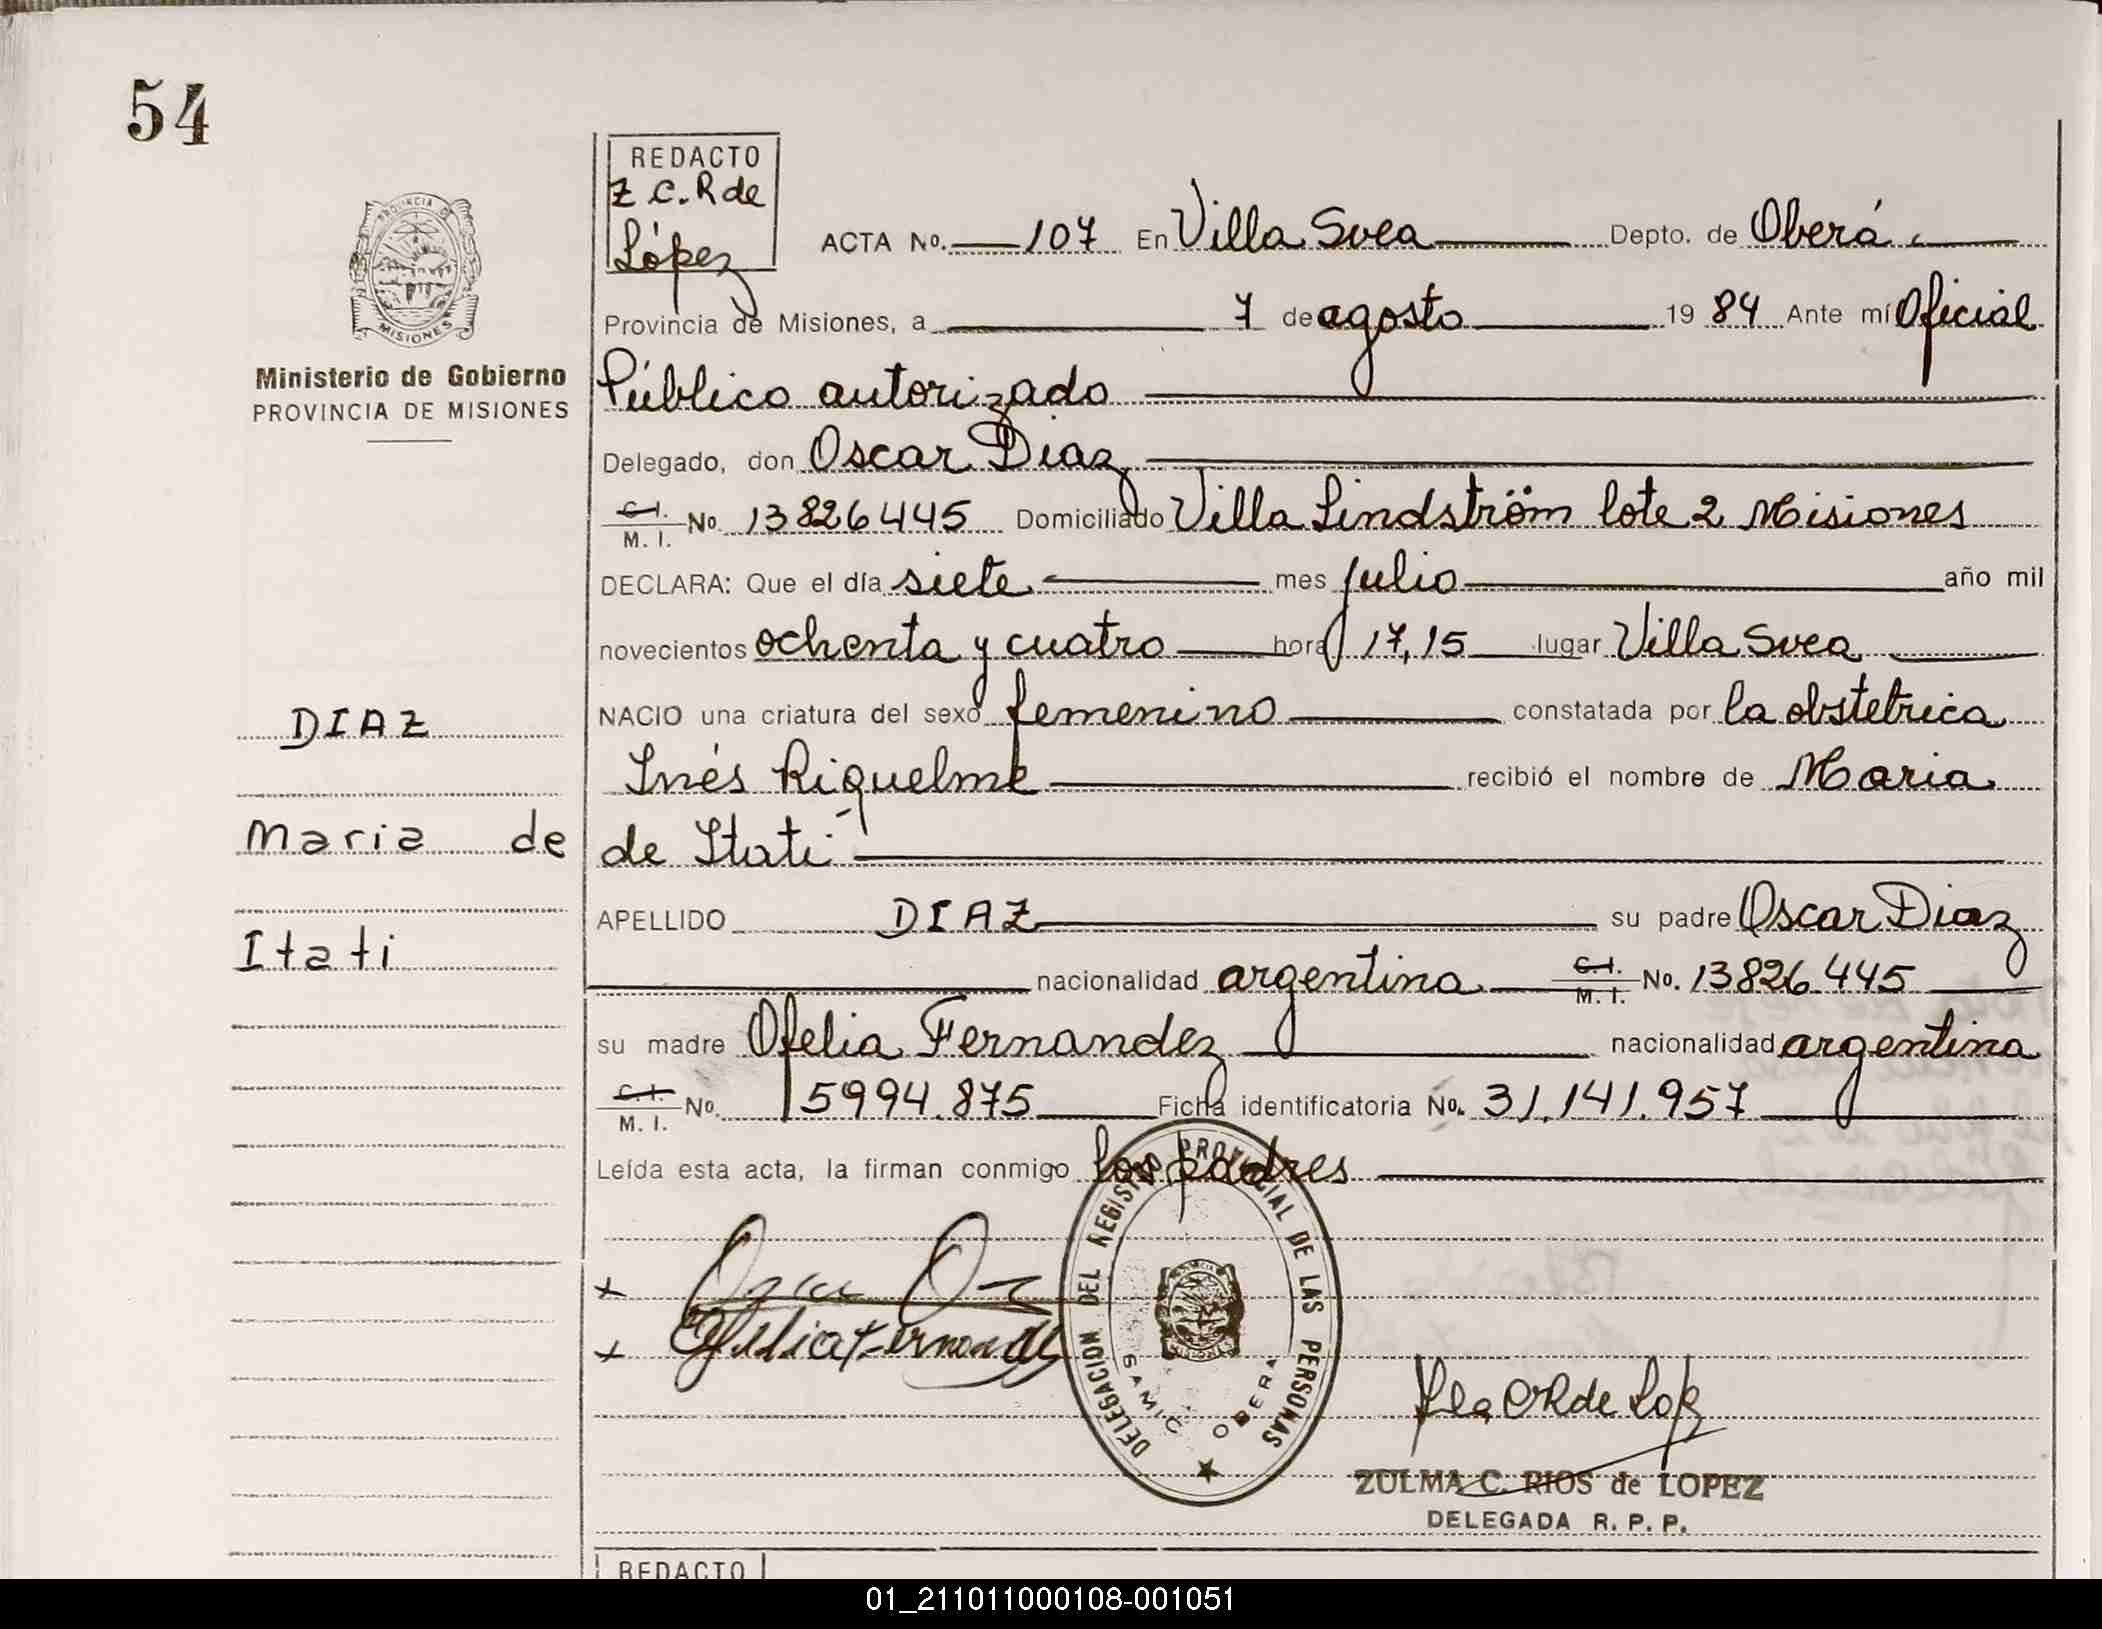 54
REDACTO
Z C. R de
López
PROVINCIA DE
MISIONES
Ministerio de Gobierno
PROVINCIA DE MISIONES
ACTA No. 107 En Villa Svea Depto. de Oberá
Provincia de Misiones, a 7 de agosto 19 84 Ante mí Oficial
Público autorizado
Delegado, don Oscar Diaz
C.I.
M. I. No. 13826445 Domiciliado Villa Lindström lote 2 Misiones
DECLARA: Que el día siete mes julio año mil
novecientos ochenta y cuatro hora 17,15 lugar Villa Svea
NACIO una criatura del sexo femenino constatada por la obstetrica
Inés Riquelme recibió el nombre de Maria
de Itati
DIAZ
Maria de
Itati
APELLIDO DIAZ su padre Oscar Diaz
nacionalidad argentina C.I. M. I. No. 13826.445
su madre Ofelia Fernandez nacionalidad argentina
C.I.
M. I. No. 15994.875 Ficha identificatoria No. 31.141.957
Leída esta acta, la firman conmigo los padres
Ofelia Fernandez
DELEGACION DEL REGISTRO PROVINCIAL DE LAS PERSONAS
SAMIC OBERA
ZULMA C. RIOS de LOPEZ
DELEGADA R. P. P.
REDACTO
01_211011000108-001051